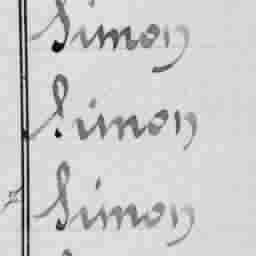 Simon
Simon
Simon